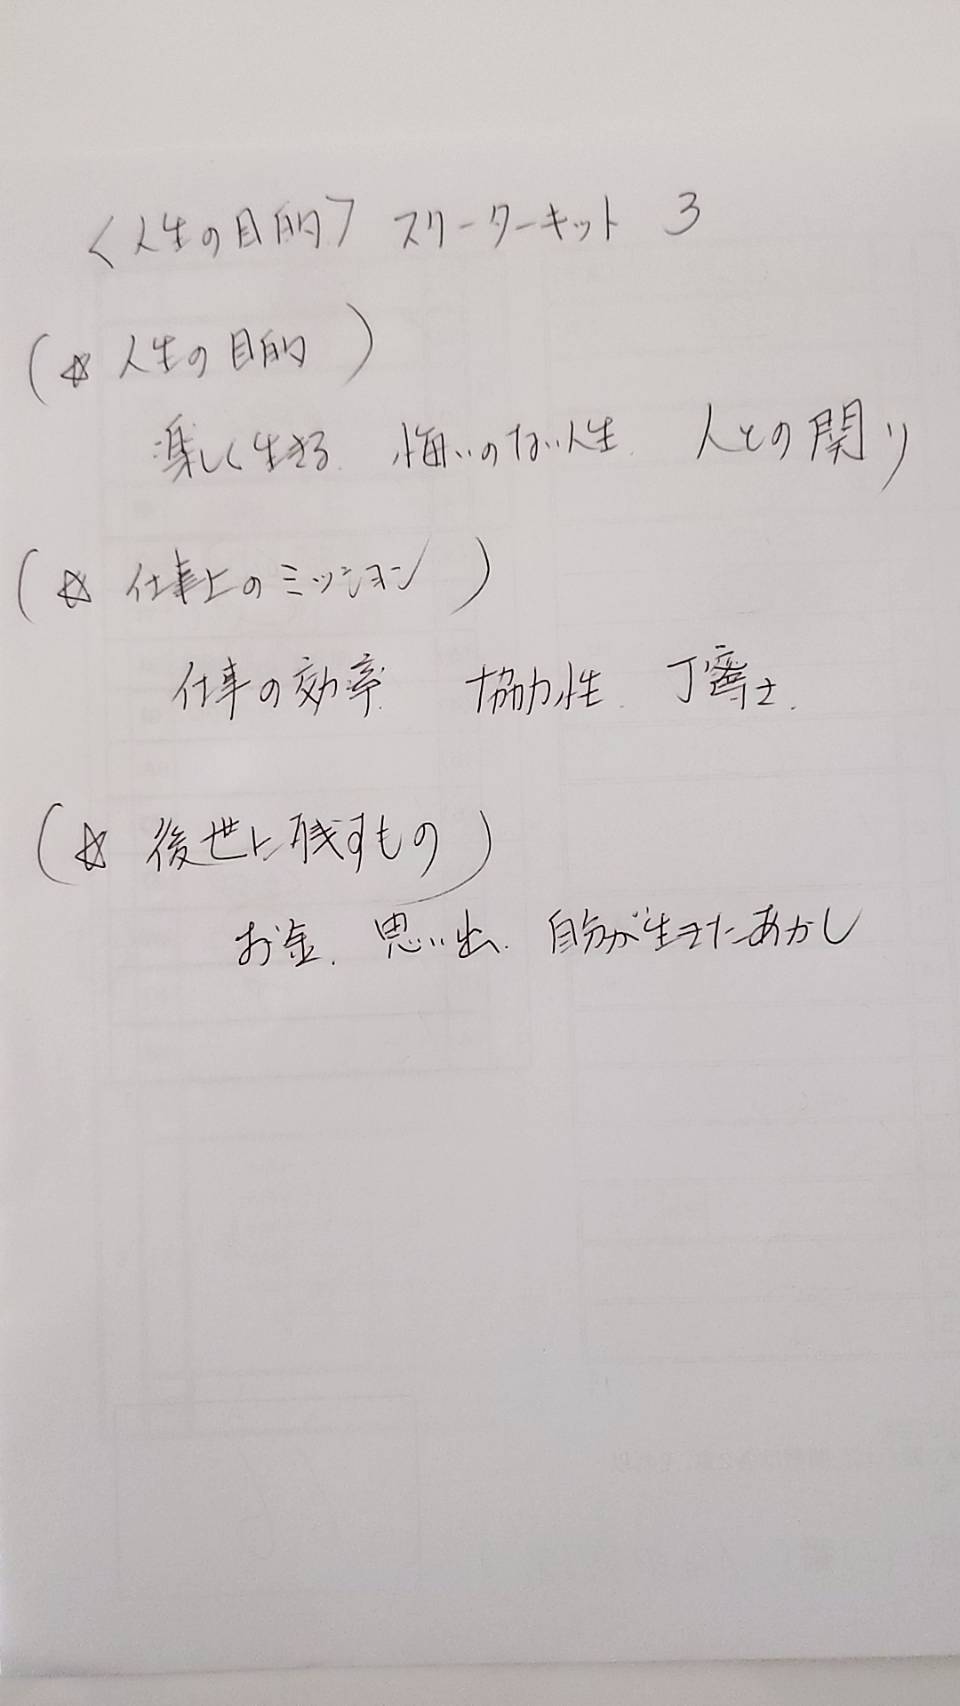 <人生の目的> スターターキット 3
(☆ 人生の目的)
楽しく生きる. 悔いのない人生. 人との関り
(☆ 仕事上のミッション)
仕事の効率. 協力性. 丁寧さ.
(☆ 後世に残すもの)
お金. 思い出. 自分が生きたあかし